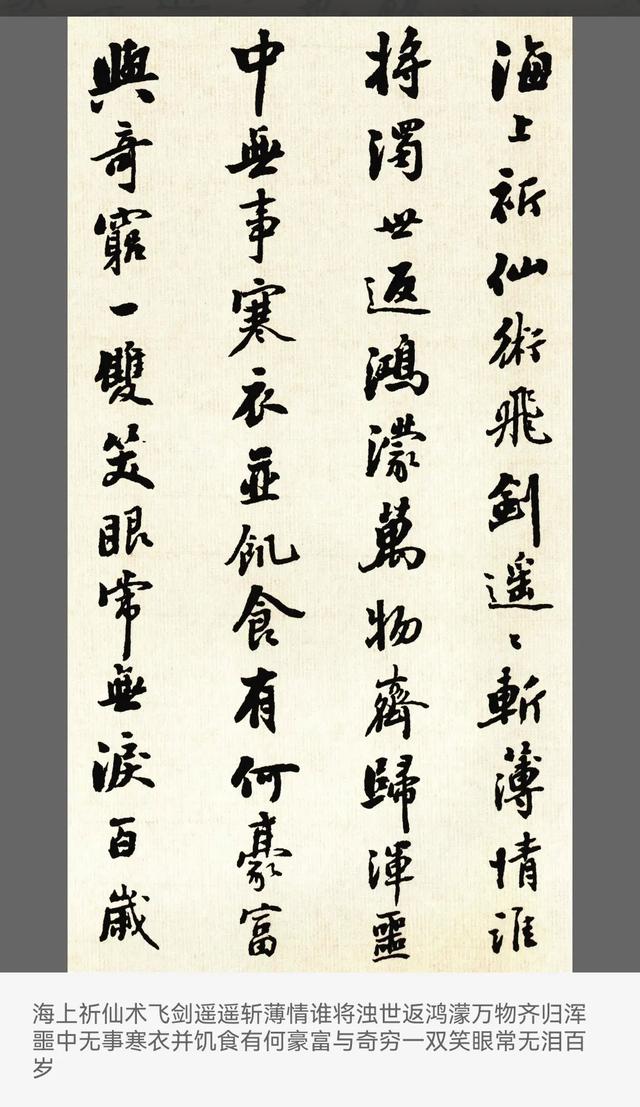 海上祈仙術飛劍遥〻斬薄情誰
將濁世返鴻濛萬物齊歸渾噩
中無事寒衣並飢食有何豪富
與奇窮一雙笑眼常無淚百歲
海上祈仙术飞剑遥遥斩薄情谁将浊世返鸿濛万物齐归浑
噩中无事寒衣并饥食有何豪富与奇穷一双笑眼常无泪百
岁